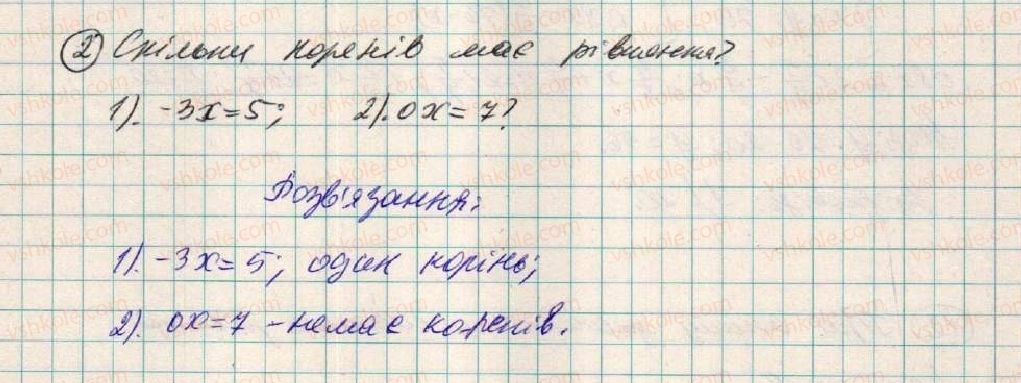 2 Скільки коренів має рівняння?
1). -3x=5; 2). 0x=7?
Розв'язання:
1). -3x=5; один корінь;
2). 0x=7 - немає коренів.